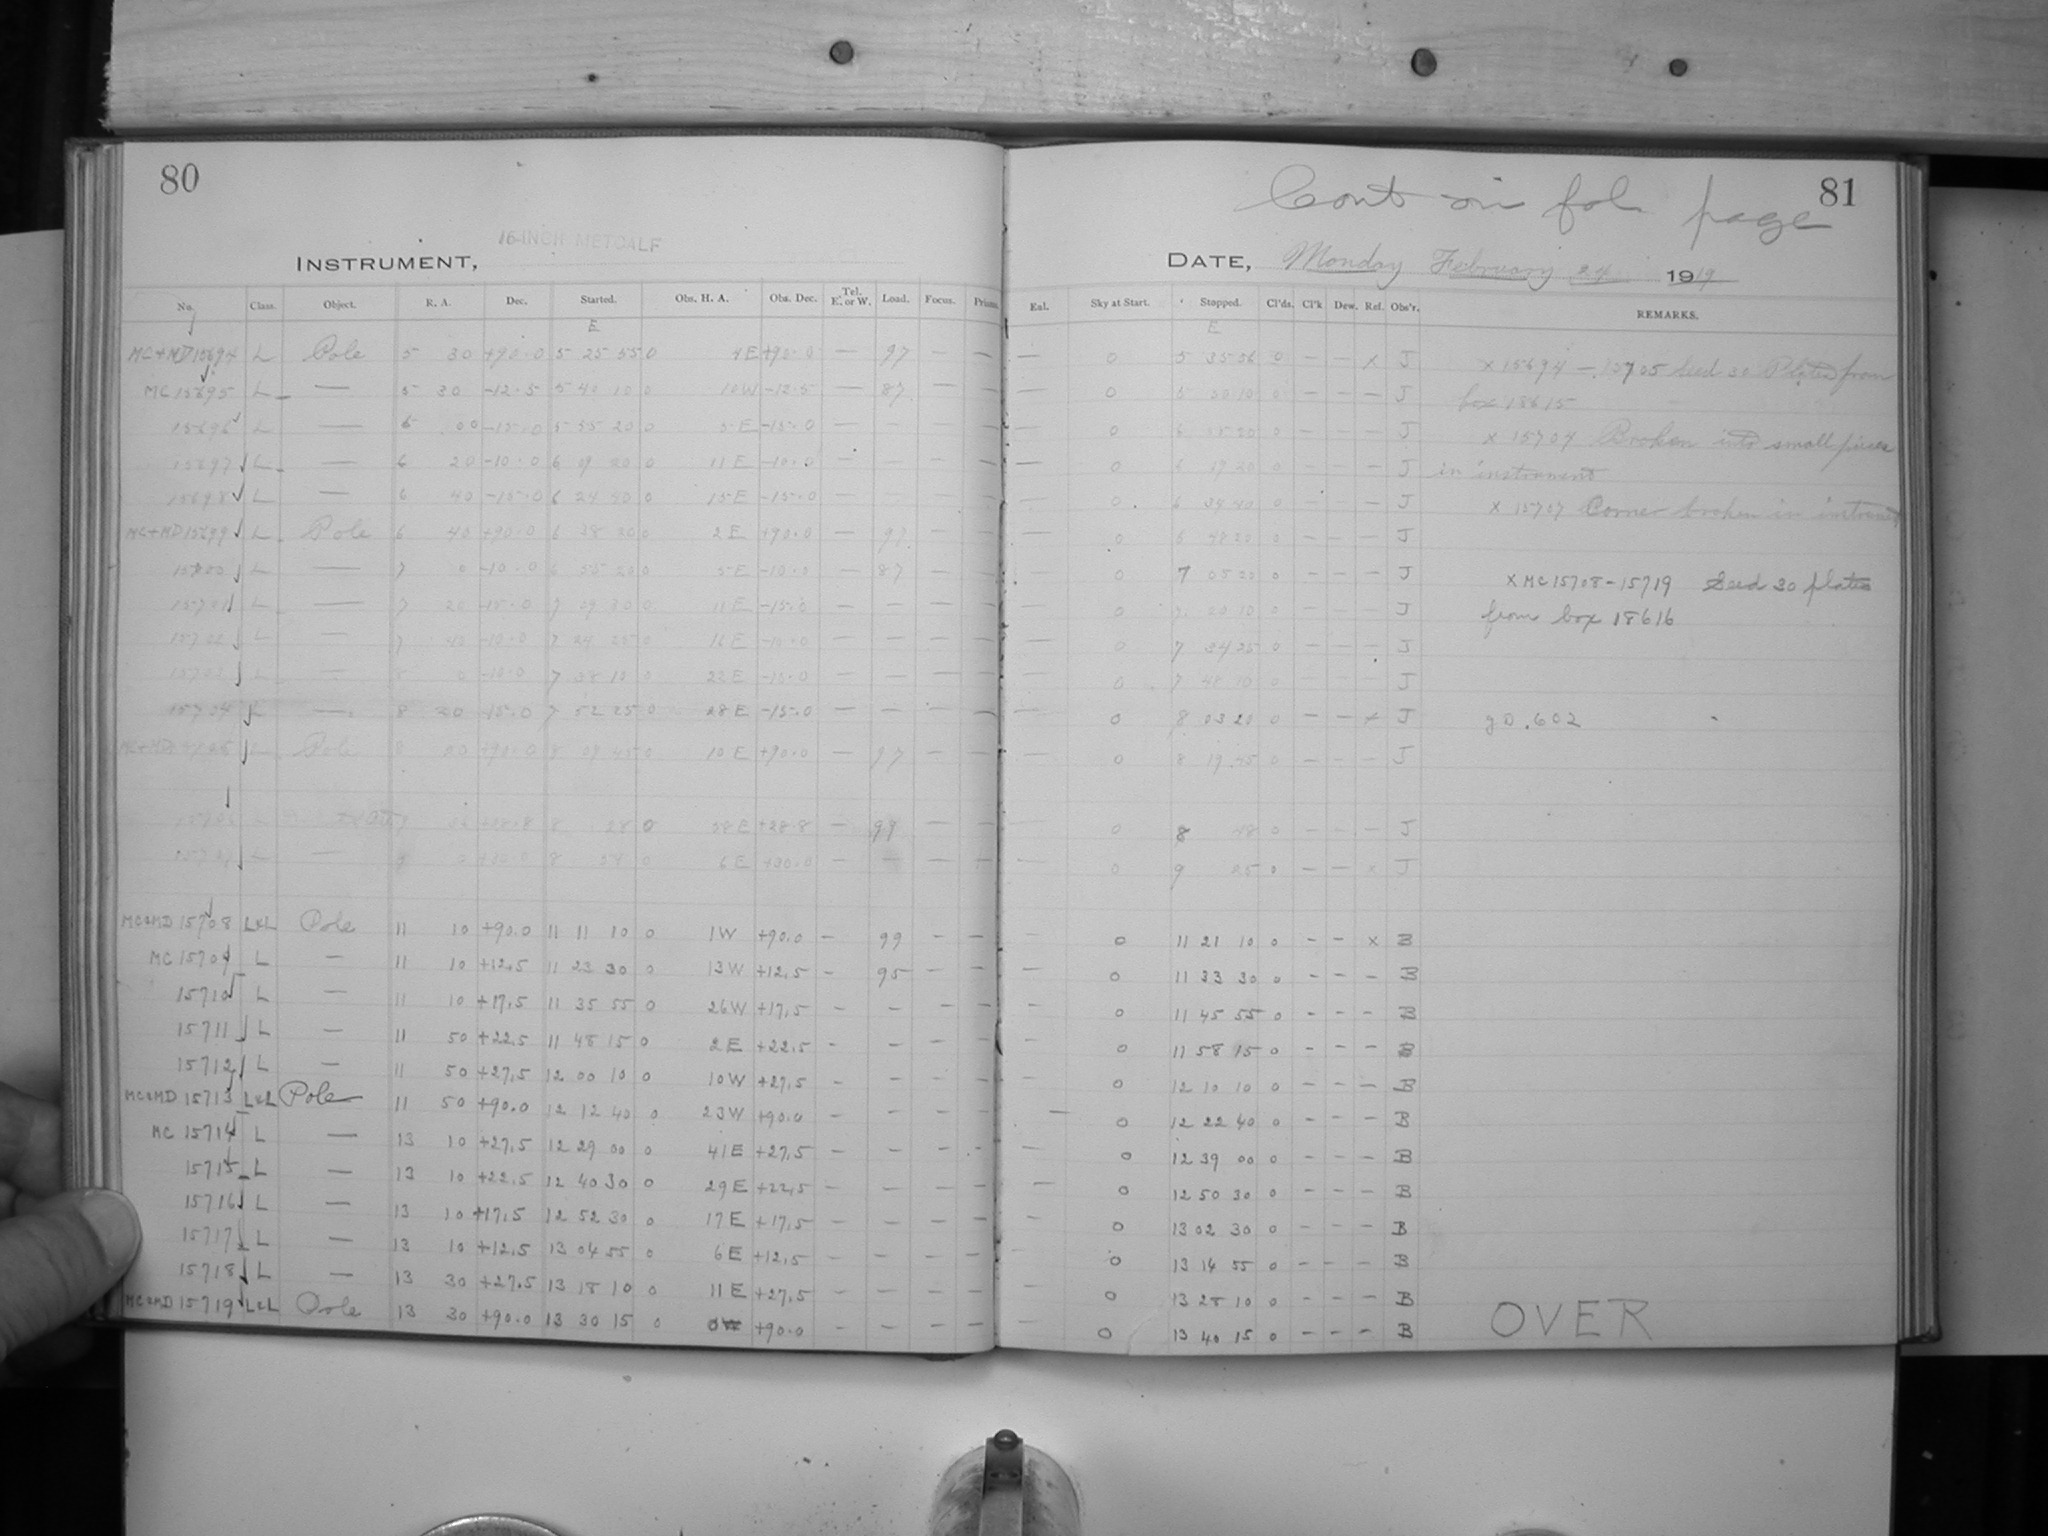 80
16-INCH METCALF
INSTRUMENT,
No. Class. Object. R. A. Dec. Started. Obs. H. A. Obs. Dec. Tel. E. or W. Load. Focus. Prism.
E
MC+MD 15694 L Pole 5 30 +90.0 5 25 55 0 4E +90.0 — 97 — —
MC 15695 L — 5 30 -12.5 5 40 10 0 10W -12.5 — 87 — —
15696 L — 6 00 -15.0 5 55 20 0 5E -15.0 — — — —
15697 L — 6 20 -10.0 6 09 20 0 11E -10.0 — — — —
15698 L — 6 40 -15.0 6 24 40 0 15E -15.0 — — — —
MC+MD 15699 L Pole 6 40 +90.0 6 38 20 0 2E +90.0 — 97 — —
15700 L — 7 0 -10.0 6 55 20 0 5E -10.0 — 87 — —
15701 L — 7 20 -15.0 7 09 30 0 11E -15.0 — — — —
15702 L — 7 40 -10.0 7 24 25 0 16E -10.0 — — — —
15703 L — 8 0 -10.0 7 38 10 0 22E -10.0 — — — —
15704 L — 8 20 -15.0 7 52 25 0 28E -15.0 — — — —
MC+MD 15705 L Pole 8 20 +90.0 8 09 45 0 10E +90.0 — 97 — —
+28.8 8 28 0 38E +28.8 — 99 — —
L — 9 0 8 0 6E +30.0 — — — —
MC&MD 15708 L&L Pole 11 10 +90.0 11 11 10 0 1W +90.0 — 99 — —
MC 15709 L — 11 10 +12.5 11 23 30 0 13W +12.5 — 95 — —
15710 L — 11 10 +17.5 11 35 55 0 26W +17.5 — — — —
15711 L — 11 50 +22.5 11 48 15 0 2E +22.5 — — — —
15712 L — 11 50 +27.5 12 00 10 0 10W +27.5 — — — —
MC&MD 15713 L&L Pole 11 50 +90.0 12 12 40 0 23W +90.0 — — — —
MC 15714 L — 13 10 +27.5 12 29 00 0 41E +27.5 — — — —
15715 L — 13 10 +22.5 12 40 30 0 29E +22.5 — — — —
15716 L — 13 10 +17.5 12 52 30 0 17E +17.5 — — — —
15717 L — 13 10 +12.5 13 04 55 0 6E +12.5 — — — —
15718 L — 13 30 +27.5 13 18 10 0 11E +27.5 — — — —
MC&MD 15719 L&L Pole 13 30 +90.0 13 30 15 0 0W +90.0 — — — —
81
Cont on fol page
DATE, Monday February 24 1919
Eal. Sky at Start. Stopped. Cl'ds. Cl'k Dew. Ref. Obs'r. REMARKS.
E
— 0 5 35 56 0 — — x J x 15694 — 15705 Seed 30 Plates from
— 0 5 50 10 0 — — — J box 18615
— 0 6 0 — — — J x 15704 Broken into small pieces
— 0 6 19 20 0 — — — J in instrument
— 0 6 34 40 0 — — — J x 15707 Corner broken in instrument
0 6 48 20 0 — — — J
— 0 7 05 20 0 — — — J x MC 15708-15719 Seed 30 plates
— 0 7 20 10 0 — — — J from box 18616
— 0 7 34 25 0 — — — J
— 0 7 48 10 0 — — — J
— 0 8 03 20 0 — — x J g D .602
— 0 8 19 45 0 — — — J
— 0 8 48 0 — — — J
— 0 9 25 0 — — x J
— 0 11 21 10 0 — — x B
— 0 11 33 30 0 — — — B
— 0 11 45 55 0 — — — B
— 0 11 58 15 0 — — — B
— 0 12 10 10 0 — — — B
— 0 12 22 40 0 — — — B
— 0 12 39 00 0 — — — B
— 0 12 50 30 0 — — — B
— 0 13 02 30 0 — — — B
— 0 13 14 55 0 — — — B
— 0 13 28 10 0 — — — B
— 0 13 40 15 0 — — — B
OVER